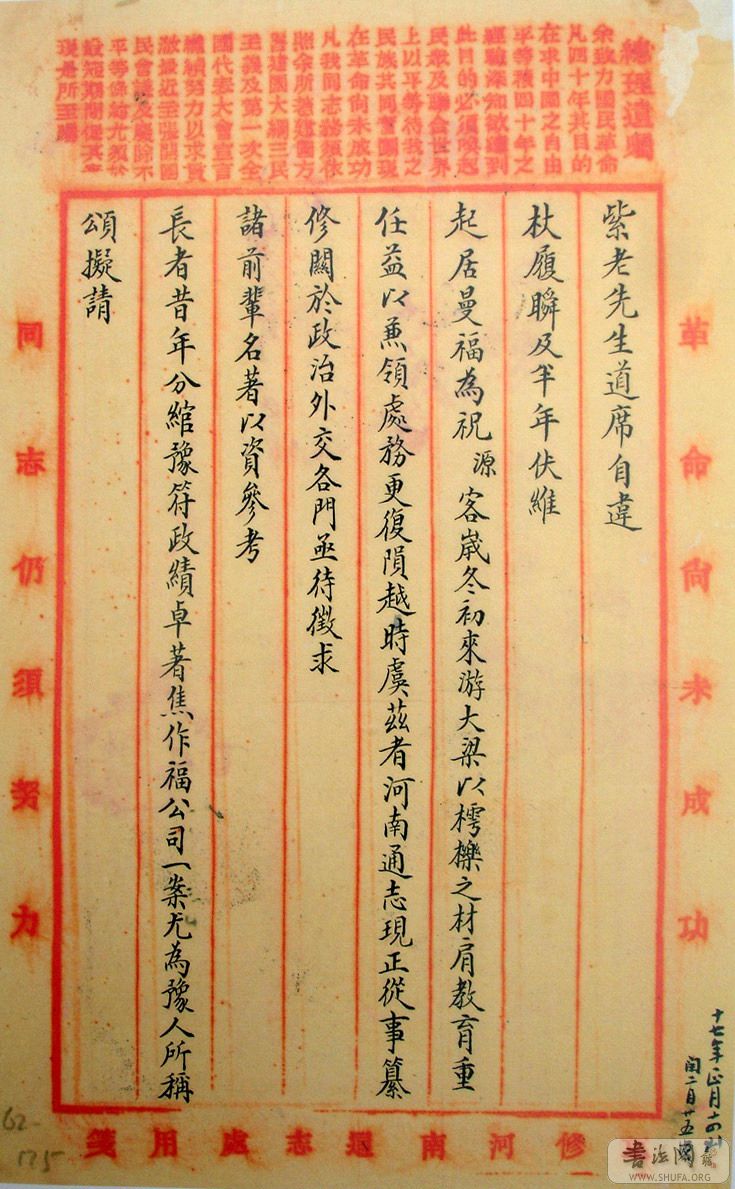 總理遺囑
余致力國民革命
凡四十年其目的
在求中國之自由
平等積四十年之
經驗深知欲達到
此目的必須喚起
民眾及聯合世界
上以平等待我之
民族共同奮鬥現
在革命尚未成功
凡我同志務須依
照余所著建國方
略建國大綱三民
主義及第一次全
國代表大會宣言
繼續努力以求貫
徹最近主張開國
民會議及廢除不
平等條約尤須於
最短期間促其實
現是所至囑
革命尚未成功
紫老先生道席自違
杖履瞬及半年伏維
起居曼福為祝源客歲冬初來游大梁以樗櫟之材肩教育重
任益以兼領處務更復隕越時虞茲者河南通志現正從事纂
修關於政治外交各門亟待徵求
諸前輩名著以資參考
長者昔年分綰豫符政績卓著焦作福公司一案尤為豫人所稱
頌擬請
同志仍須努力
修河南通志處用箋
十七年正月十四
閏二月廿五
62
175
書法閣
WWW.SHUFA.ORG